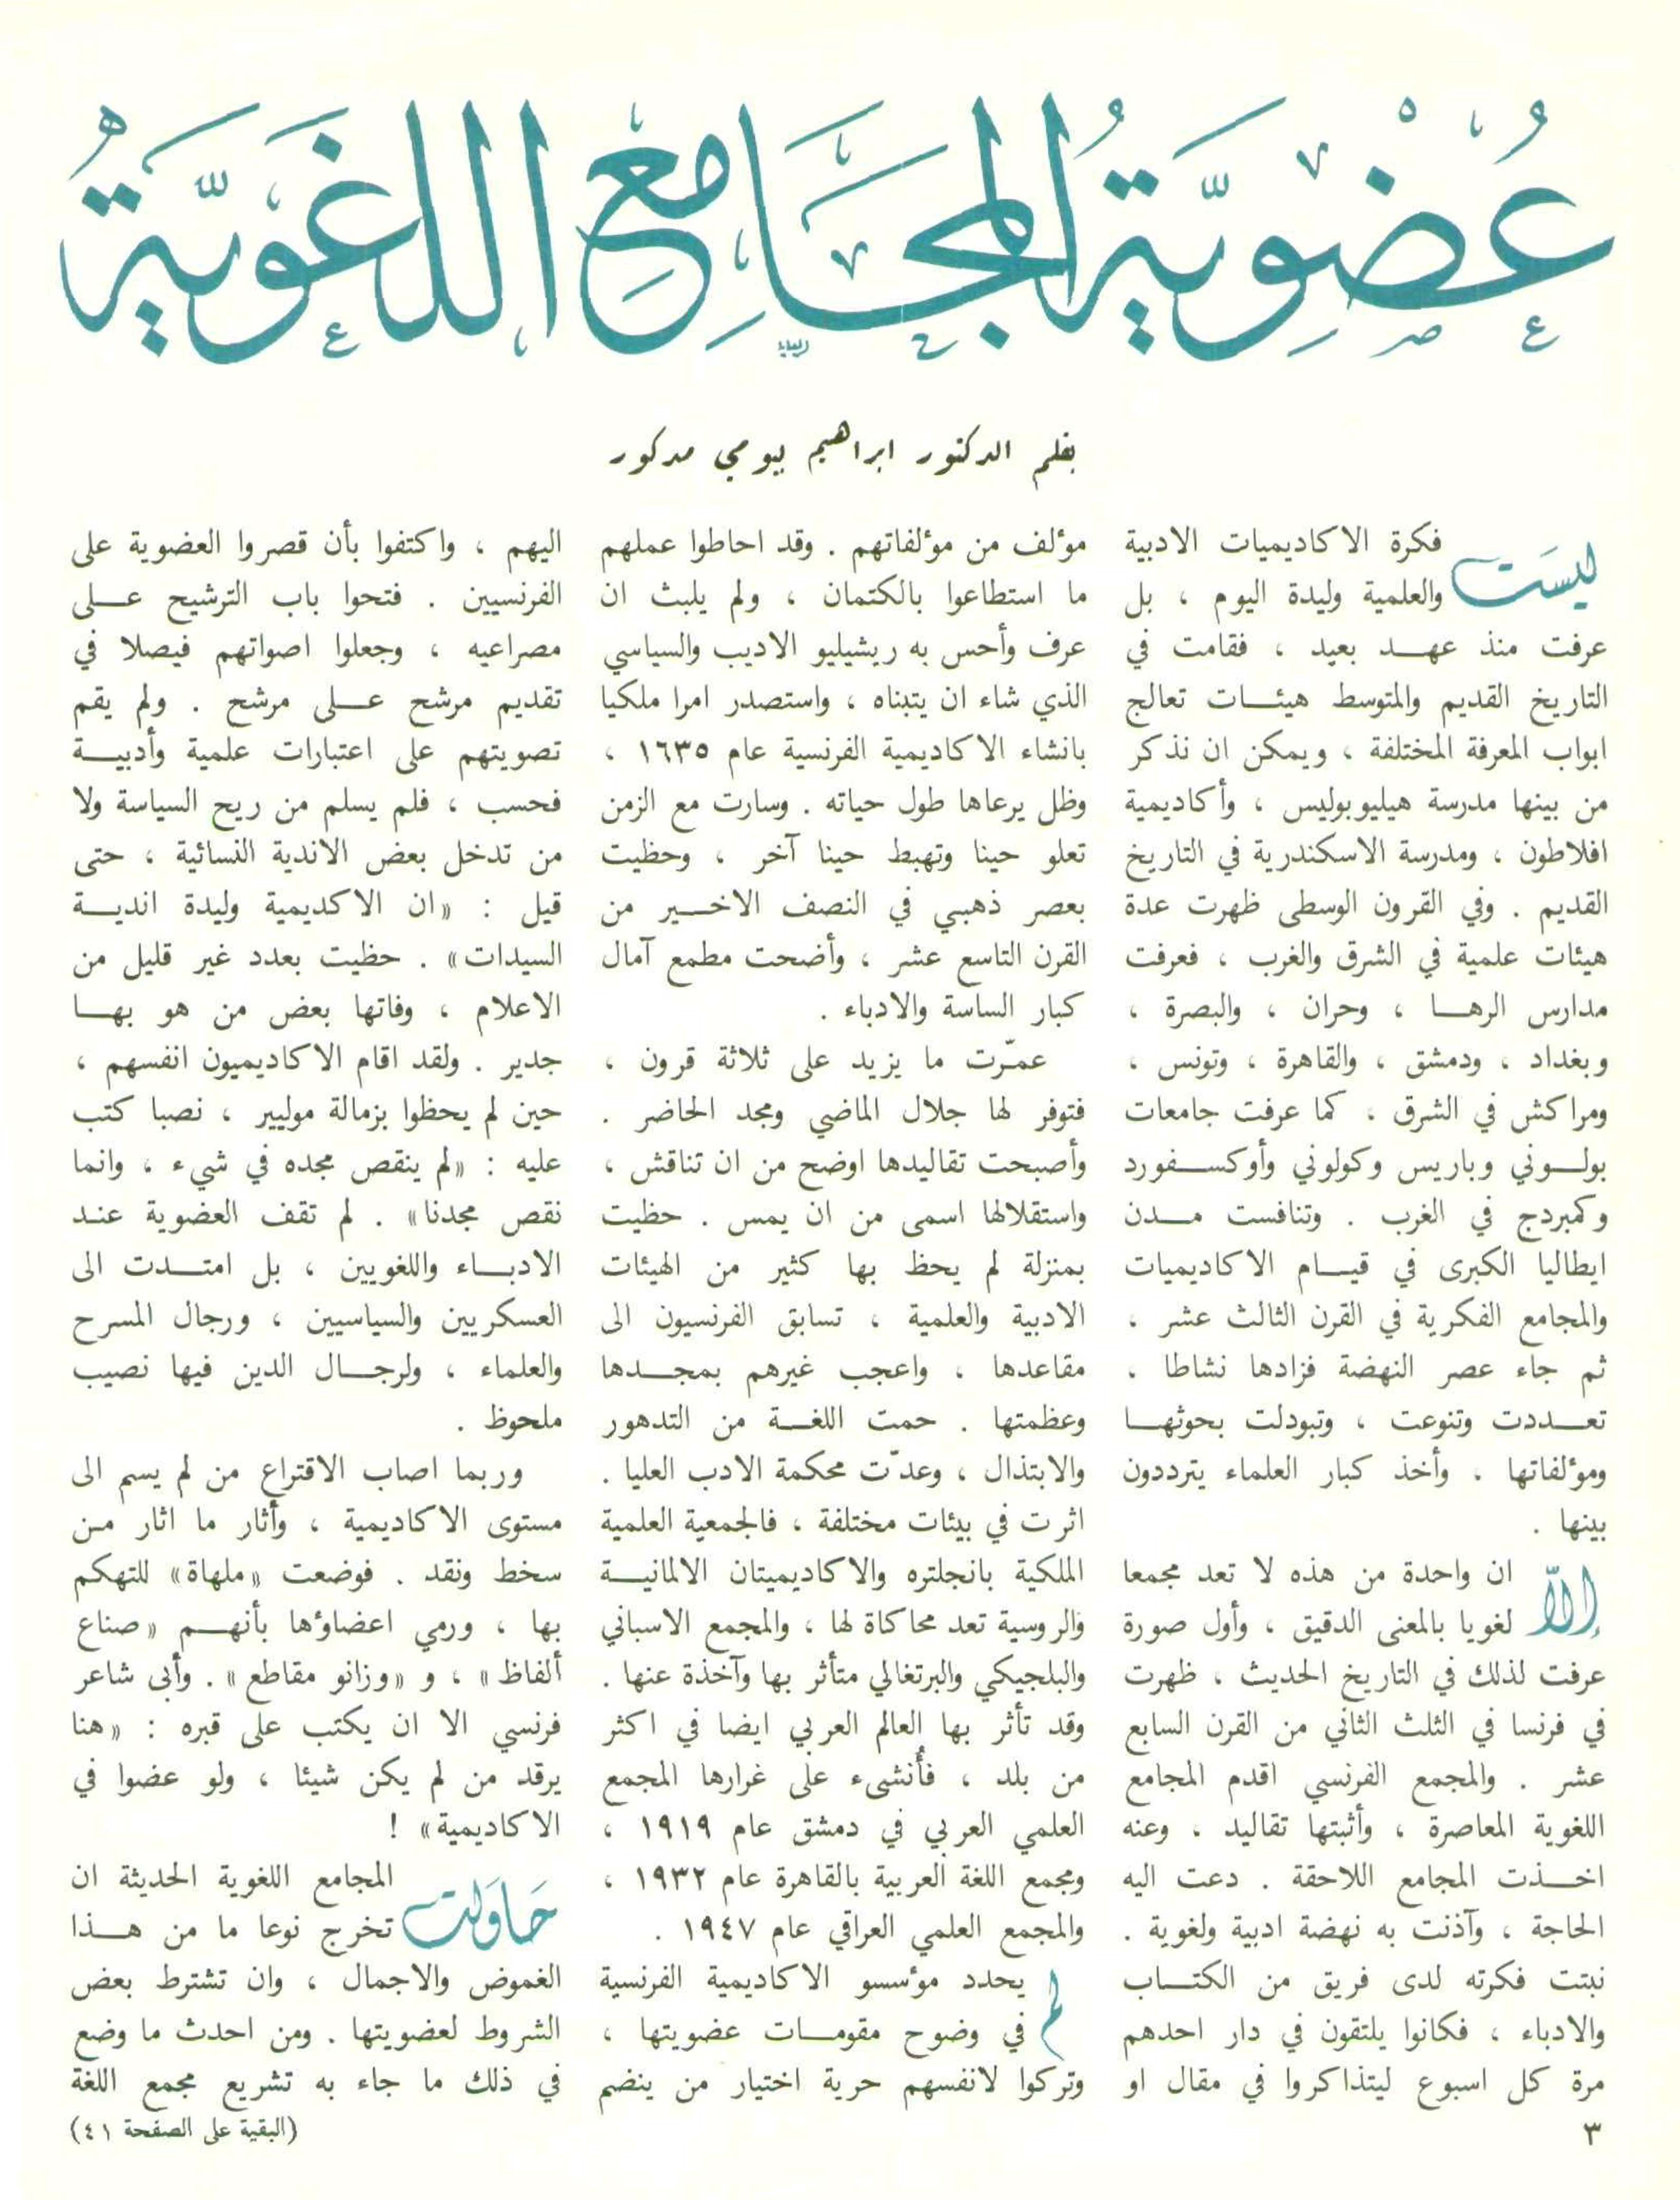 عُضْوِيَّةُ الْمَجَامِعِ اللُّغَوِيَّةِ
بقلم الدكتور ابراهيم بيومي مدكور
ليست فكرة الاكاديميات الادبية
والعلمية وليدة اليوم ، بل
عرفت منذ عهد بعيد ، فقامت في
التاريخ القديم والمتوسط هيئات تعالج
ابواب المعرفة المختلفة ، ويمكن ان نذكر
من بينها مدرسة هيليوبوليس ، وأكاديمية
افلاطون ، ومدرسة الاسكندرية في التاريخ
القديم . وفي القرون الوسطى ظهرت عدة
هيئات علمية في الشرق والغرب ، فعرفت
مدارس الرها ، وحران ، والبصرة ،
وبغداد ، ودمشق ، والقاهرة ، وتونس ،
ومراكش في الشرق . كما عرفت جامعات
بولوني وباريس وكولوني وأوكسفورد
وكمبردج في الغرب . وتنافست مدن
ايطاليا الكبرى في قيام الاكاديميات
والمجامع الفكرية في القرن الثالث عشر ،
ثم جاء عصر النهضة فزادها نشاطا .
تعددت وتنوعت ، وتبودلت بحوثها
ومؤلفاتها . وأخذ كبار العلماء يترددون
بينها .
إلاّ ان واحدة من هذه لا تعد مجمعا
لغويا بالمعنى الدقيق ، وأول صورة
عرفت لذلك في التاريخ الحديث ، ظهرت
في فرنسا في الثلث الثاني من القرن السابع
عشر . والمجمع الفرنسي اقدم المجامع
اللغوية المعاصرة ، وأثبتها تقاليد ، وعنه
اخذت المجامع اللاحقة . دعت اليه
الحاجة ، وآذنت به نهضة ادبية ولغوية .
نبتت فكرته لدى فريق من الكتاب
والادباء ، فكانوا يلتقون في دار احدهم
مرة كل اسبوع ليتذاكروا في مقال او
مؤلف من مؤلفاتهم . وقد احاطوا عملهم
ما استطاعوا بالكتمان ، ولم يلبث ان
عرف وأحس به ريشيليو الاديب والسياسي
الذي شاء ان يتبناه ، واستصدر امرا ملكيا
بانشاء الاكاديمية الفرنسية عام ١٦٣٥ ،
وظل يرعاها طول حياته . وسارت مع الزمن
تعلو حينا وتهبط حينا آخر ، وحظيت
بعصر ذهبي في النصف الاخير من
القرن التاسع عشر ، وأضحت مطمع آمال
كبار الساسة والادباء .
عمّرت ما يزيد على ثلاثة قرون ،
فتوفر لها جلال الماضي ومجد الحاضر .
وأصبحت تقاليدها اوضح من ان تناقش ،
واستقلالها اسمى من ان يمس . حظيت
بمنزلة لم يحظ بها كثير من الهيئات
الادبية والعلمية ، تسابق الفرنسيون الى
مقاعدها ، واعجب غيرهم بمجدها
وعظمتها . حمت اللغة من التدهور
والابتذال ، وعدّت محكمة الادب العليا .
اثرت في بيئات مختلفة ، فالجمعية العلمية
الملكية بانجلتره والاكاديميتان الالمانية
والروسية تعد محاكاة لها ، والمجمع الاسباني
والبلجيكي والبرتغالي متأثر بها وآخذة عنها .
وقد تأثر بها العالم العربي ايضا في اكثر
من بلد ، فأُنشىء على غرارها المجمع
العلمي العربي في دمشق عام ١٩١٩ ،
ومجمع اللغة العربية بالقاهرة عام ١٩٣٢ ،
والمجمع العلمي العراقي عام ١٩٤٧ .
لم يحدد مؤسسو الاكاديمية الفرنسية
في وضوح مقومات عضويتها ،
وتركوا لانفسهم حرية اختيار من ينضم
اليهم ، واكتفوا بأن قصروا العضوية على
الفرنسيين . فتحوا باب الترشيح على
مصراعيه ، وجعلوا اصواتهم فيصلا في
تقديم مرشح على مرشح . ولم يقم
تصويتهم على اعتبارات علمية وأدبية
فحسب ، فلم يسلم من ريح السياسة ولا
من تدخل بعض الاندية النسائية ، حتى
قيل : «ان الاكديمية وليدة اندية
السيدات» . حظيت بعدد غير قليل من
الاعلام ، وفاتها بعض من هو بها
جدير . ولقد اقام الاكاديميون انفسهم ،
حين لم يحظوا بزمالة موليير ، نصبا كتب
عليه : «لم ينقص مجده في شيء ، وانما
نقص مجدنا» . لم تقف العضوية عند
الادباء واللغويين ، بل امتدت الى
العسكريين والسياسيين ، ورجال المسرح
والعلماء ، ولرجال الدين فيها نصيب
ملحوظ .
وربما اصاب الاقتراع من لم يسم الى
مستوى الاكاديمية ، وأثار ما اثار من
سخط ونقد . فوضعت «ملهاة» للتهكم
بها ، ورمي اعضاؤها بأنهم «صناع
ألفاظ» ، و «وزانو مقاطع» . وأبى شاعر
فرنسي الا ان يكتب على قبره : «هنا
يرقد من لم يكن شيئا ، ولو عضوا في
الاكاديمية» !
حاولت المجامع اللغوية الحديثة ان
تخرج نوعا ما من هذا
الغموض والاجمال ، وان تشترط بعض
الشروط لعضويتها . ومن احدث ما وضع
في ذلك ما جاء به تشريع مجمع اللغة
(البقية على الصفحة ٤١)
٣